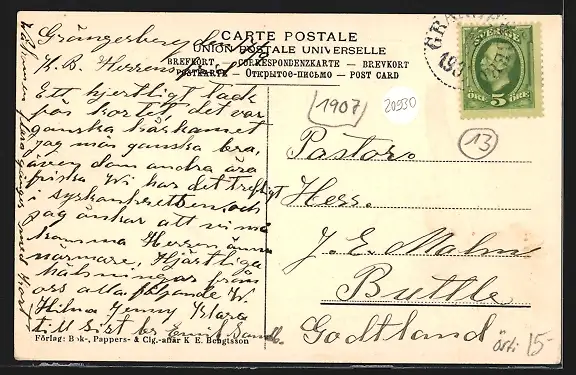 CARTE POSTALE
UNION POSTALE UNIVERSELLE
BREFKORT — CORRESPONDENZKARTE — BREVKORT
POSTKARTE — Открытое-письмо — POST CARD
GRÄN
SVERIGE
5
ÖRE ÖRE
1907
20930
13
Grängesberg den
K. B. Herren
Ett hjertligt tack
för kortet, det var
ganska
jag mår ganska bra,
även dom andra ära
friska Wi har det trefligt
i syskonkretsen, och
jag önskar att vi må
komma Herren ännu
närmare, Hjärtliga
hälsningar från
oss alla följande W.
Hilma Jenny Klara
till sist br Emil Sandb.
Pastor
Herr.
J. E. Malm
Buttle
Godtland
15-
Förlag: Bok-, Pappers- & Cig.-affär K. E. Bengtsson